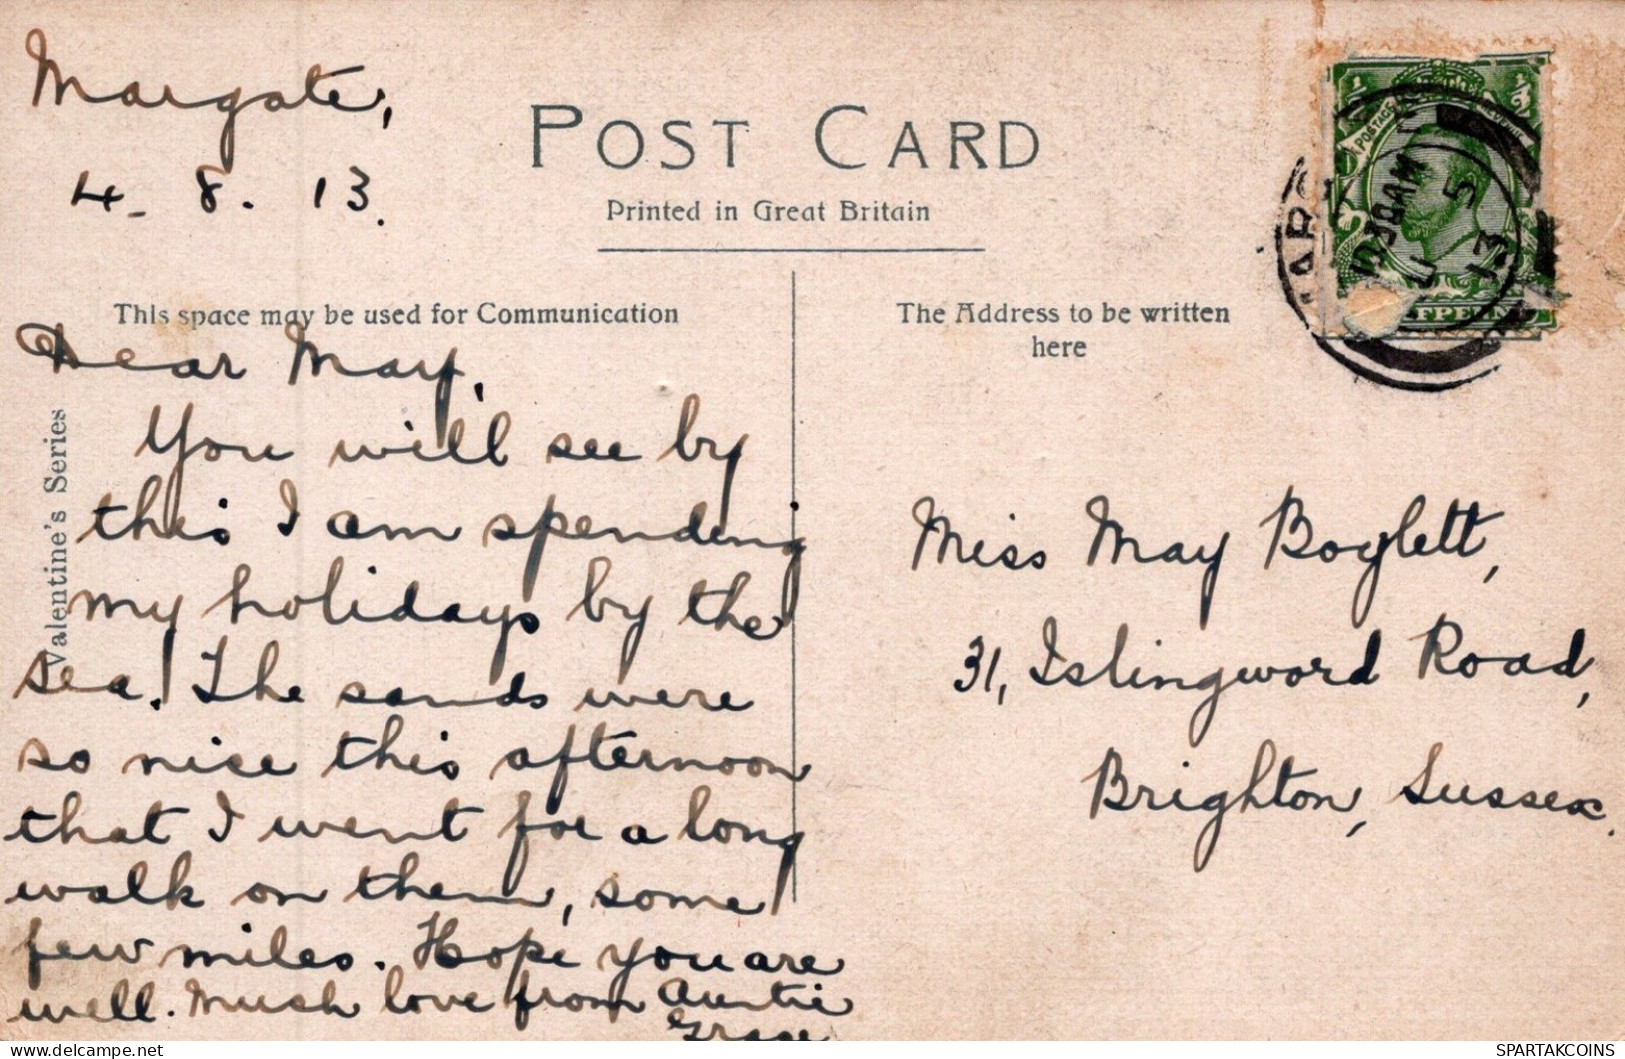 Margate,
4. 8. 13.
POST CARD
Printed in Great Britain
This space may be used for Communication
The Address to be written
here
Valentine's Series
Dear May,
You will see by
this I am spending
my holidays by the
sea. The sands were
so nice this afternoon
that I went for a long
walk on them, some
few miles. Hope you are
well. Much love from Auntie
Grace
Miss May Boglett,
31, Islingword Road,
Brighton, Sussex.
½ ½
POSTAGE
30 AM
5
13
SPARTAKCOINS